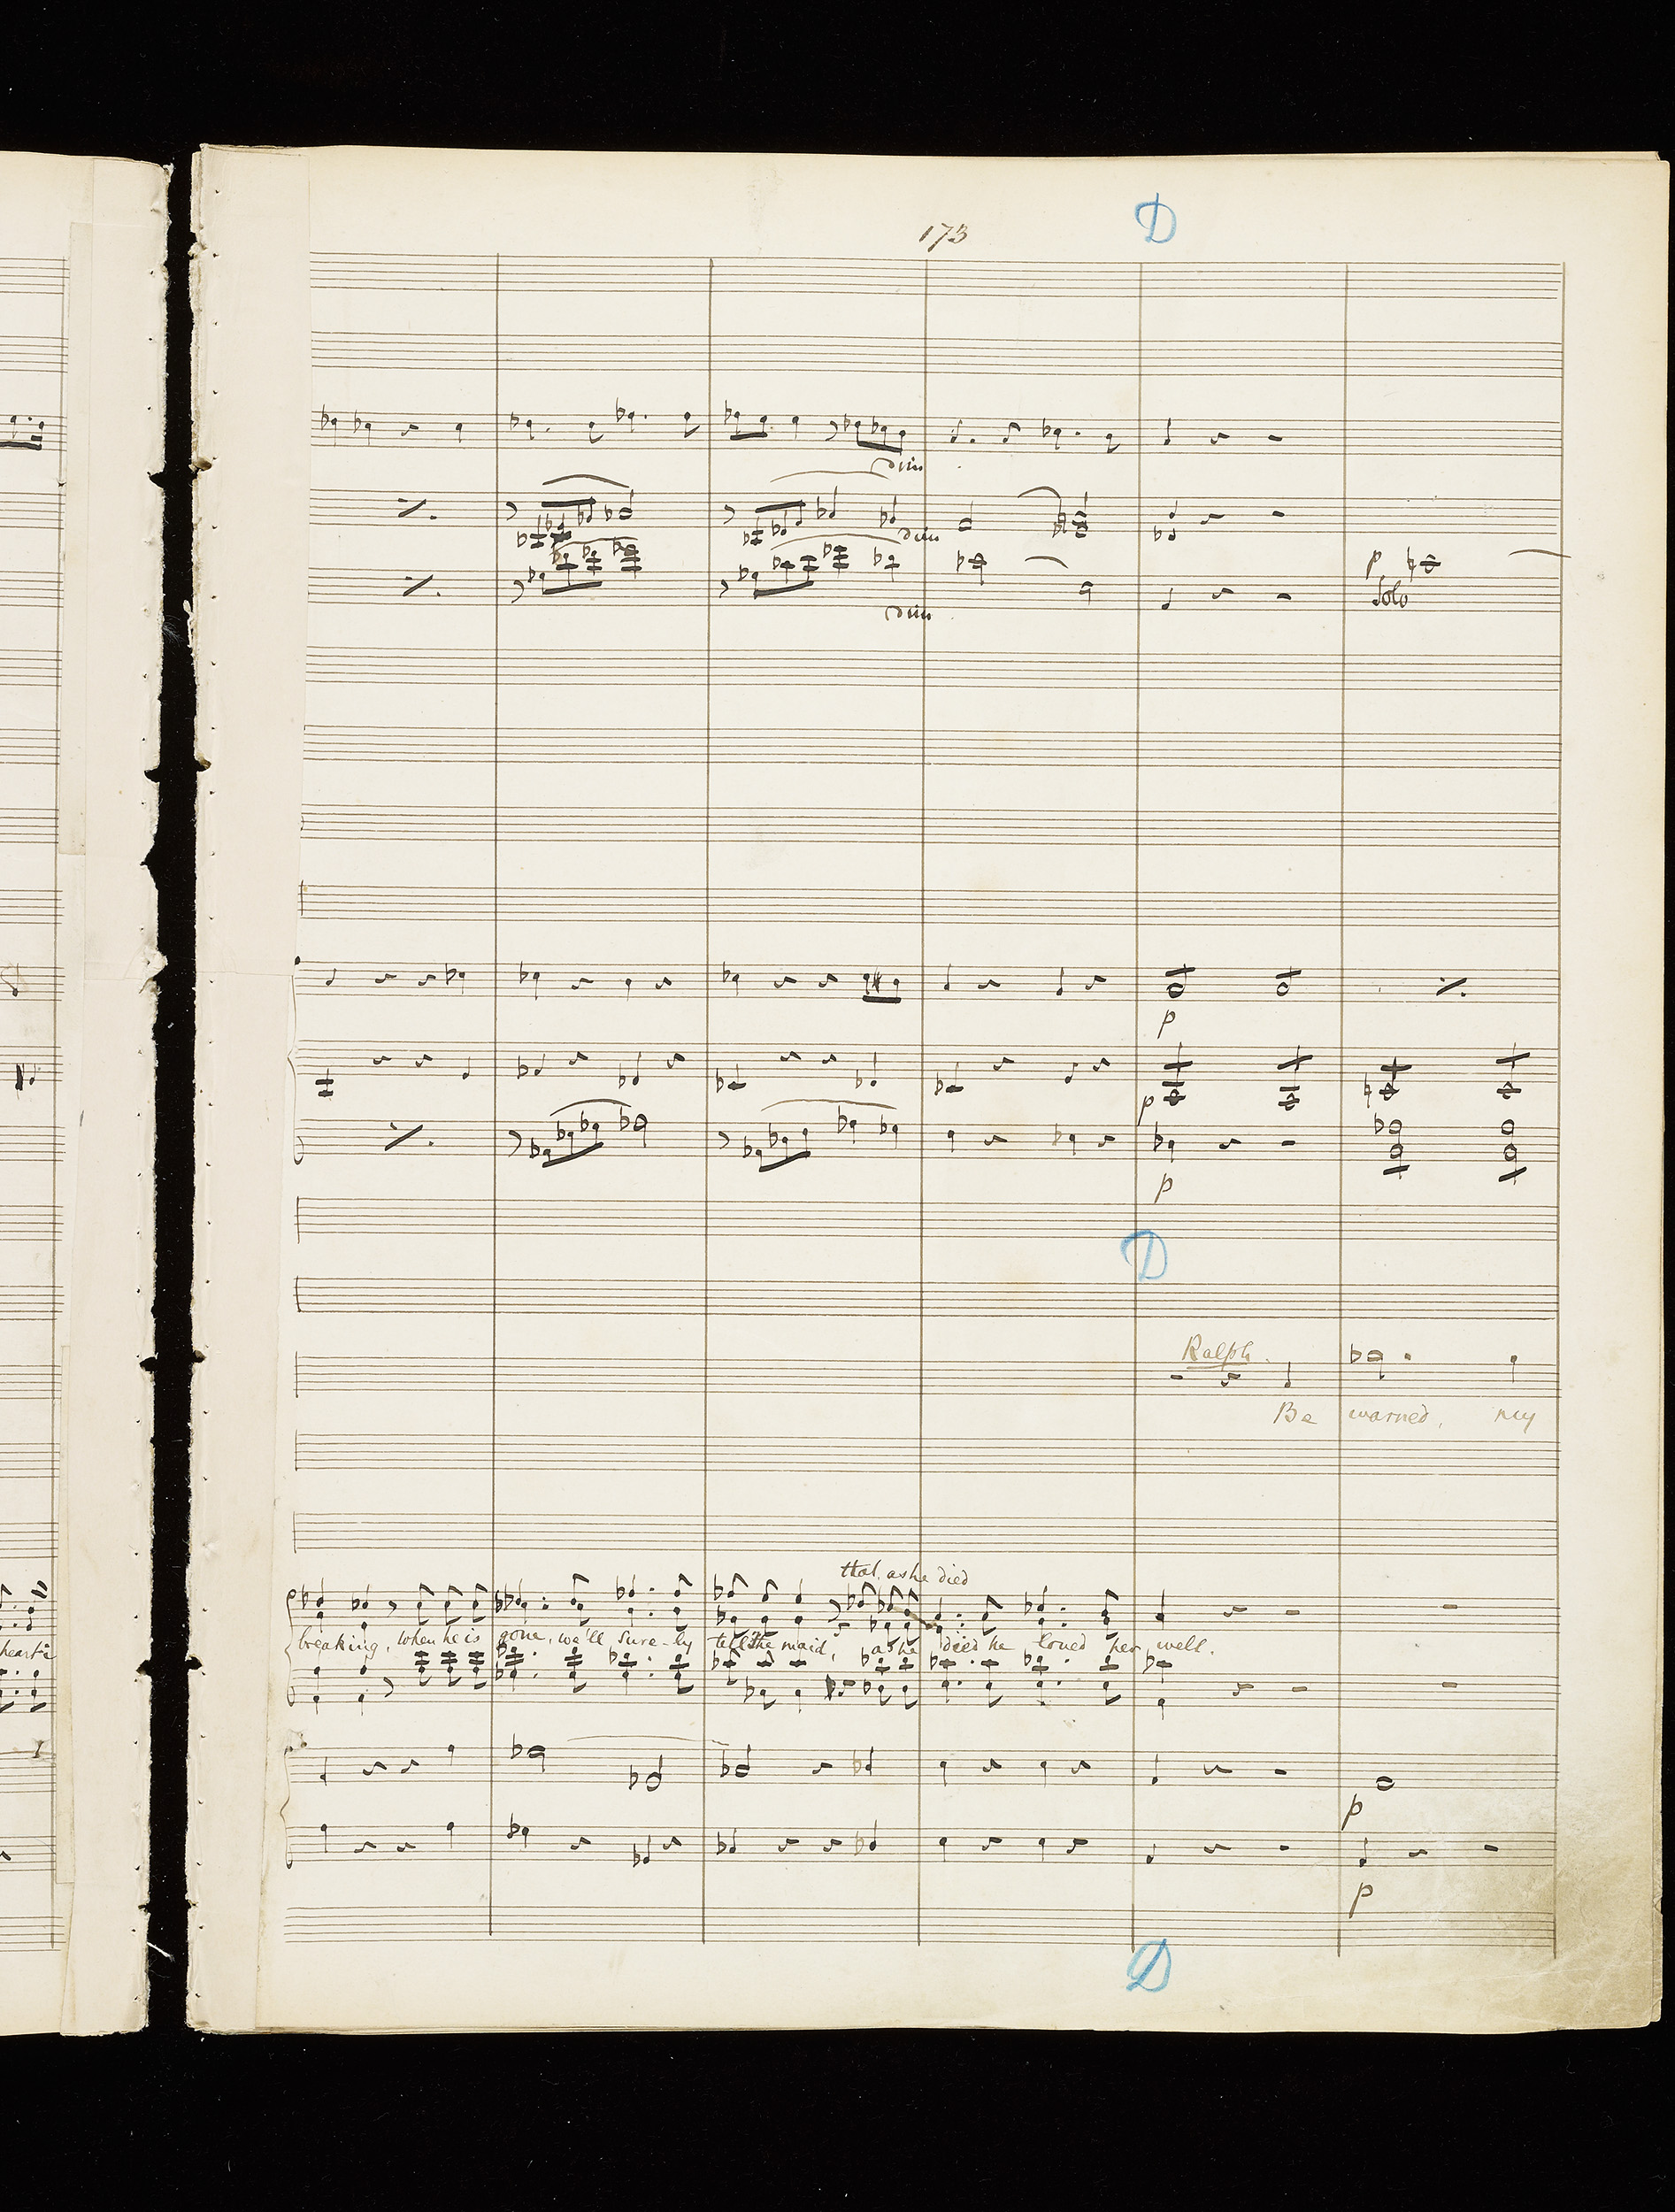 173
D
dim
dim
p
Solo
dim
p
p
p
D
Ralph.
Be warned, my
that, as he died
heart's
breaking, when he is gone, we'll sure-ly tell the maid, as he died he loved her well.
p
p
D